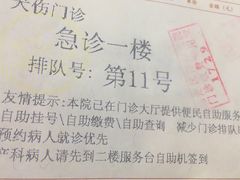 犬伤门诊
急诊一楼
排队号: 第11号
友情提示:本院已在门诊大厅提供便民自助服务
自助挂号/自助缴费/自助查询 减少门诊排队
预约病人就诊优先
产科病人请先到二楼服务台自助机签到